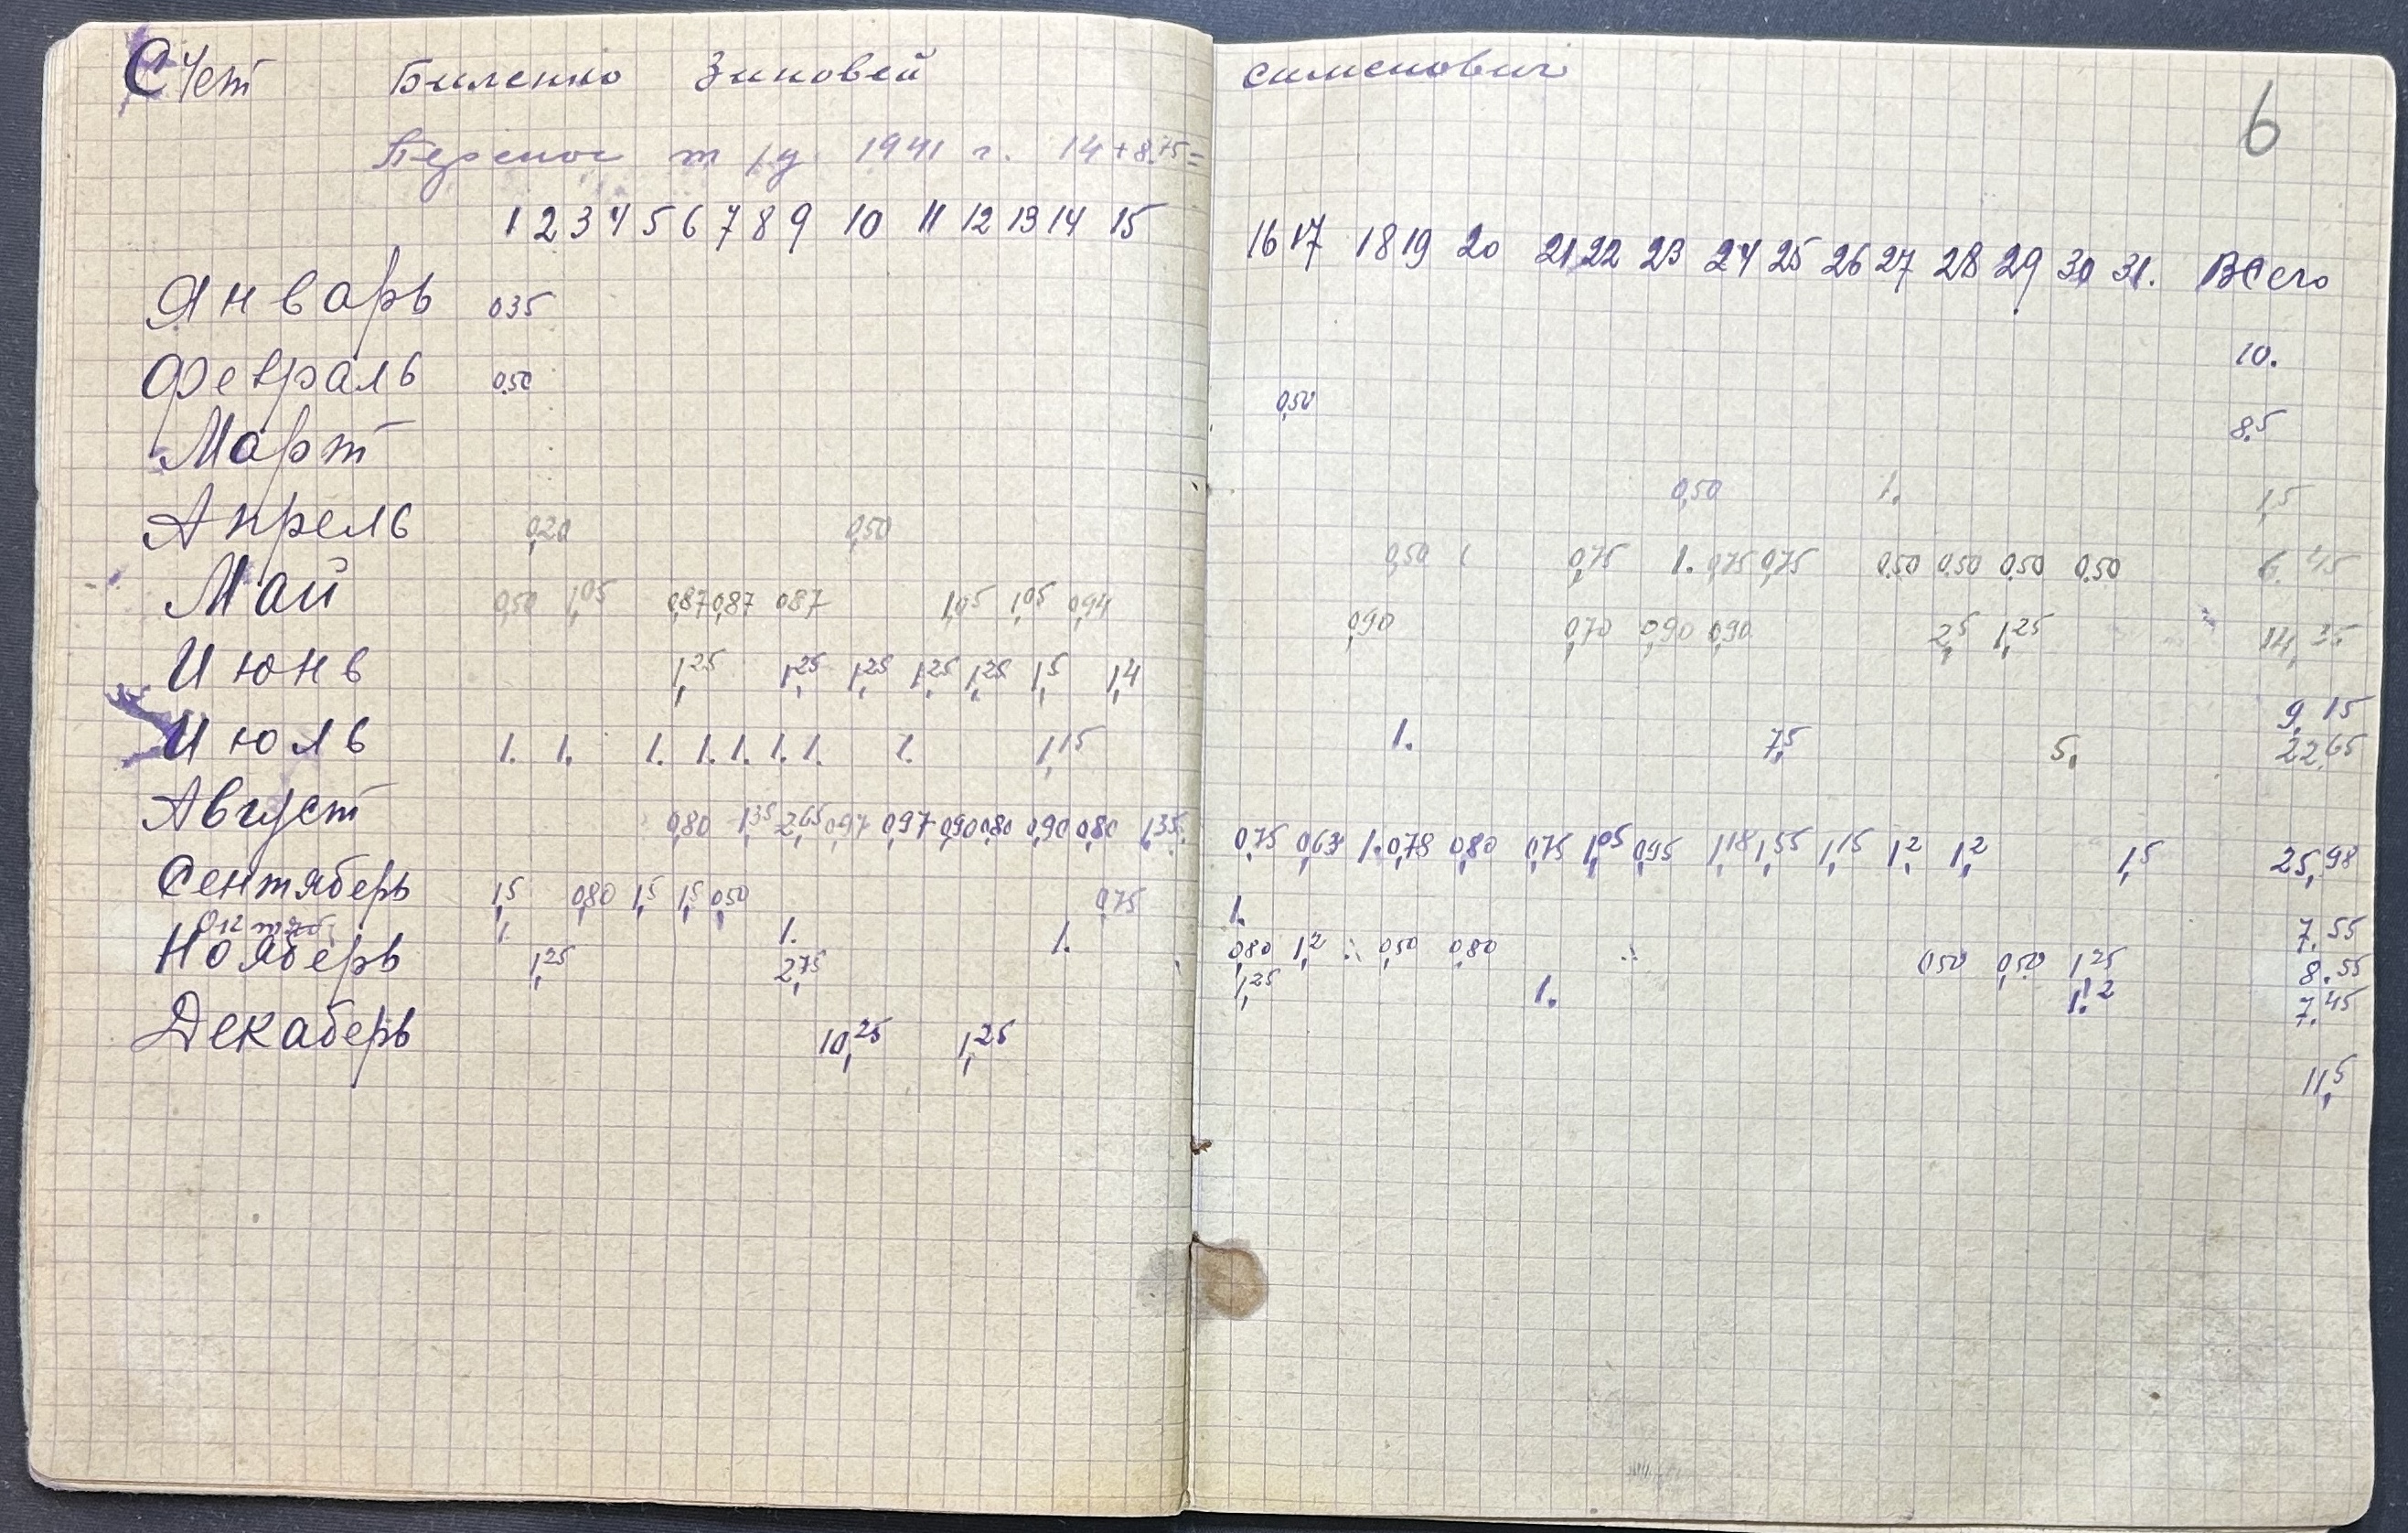 Счет Биленко Зиновей сименович
6
Перенос 1941 г. 14 + 8.75 =
1 2 3 4 5 6 7 8 9 10 11 12 13 14 15 16 17 18 19 20 21 22 23 24 25 26 27 28 29 30 31. Всего
Январь 035 10.
Февраль 0.50 0,50 8,5
Март 0,50 1. 1,5
Апрель 0,20 0,50 0,50 1 0,75 1. 0,75 0,75 0.50 0.50 0.50 0.50 6.45
Май 0,50 1,05 0,87 0,87 087 1,05 1,05 0,94 0,90 0,70 0,90 0,90 2,5 1,25 14,35
Июнь 1,25 1,25 1,25 1,25 1,25 1,5 1,4 9,15
Июль 1. 1. 1. 1. 1. 1. 1. 1. 1,15 1. 7,5 5, 22,65
Август 0,80 1,35 2,65 0,97 0,97 0,90 0,80 0,90 0,80 1,35. 0,75 0,63 1. 0,78 0,80 0,75 1,05 0,95 1,18 1,55 1,15 1,2 1,2 1,5 25,98
Сентяберь 1,5 0,80 1,5 1,5 0,50 0,75 1. 7,55
1. 1. 1. 0,80 1,2 0,50 0,80 0,50 0,50 1,25 8.55
Нояберь 1,25 2,75 1,25 1. 1.2 7.45
Декаберь 10,25 1,25 11,5